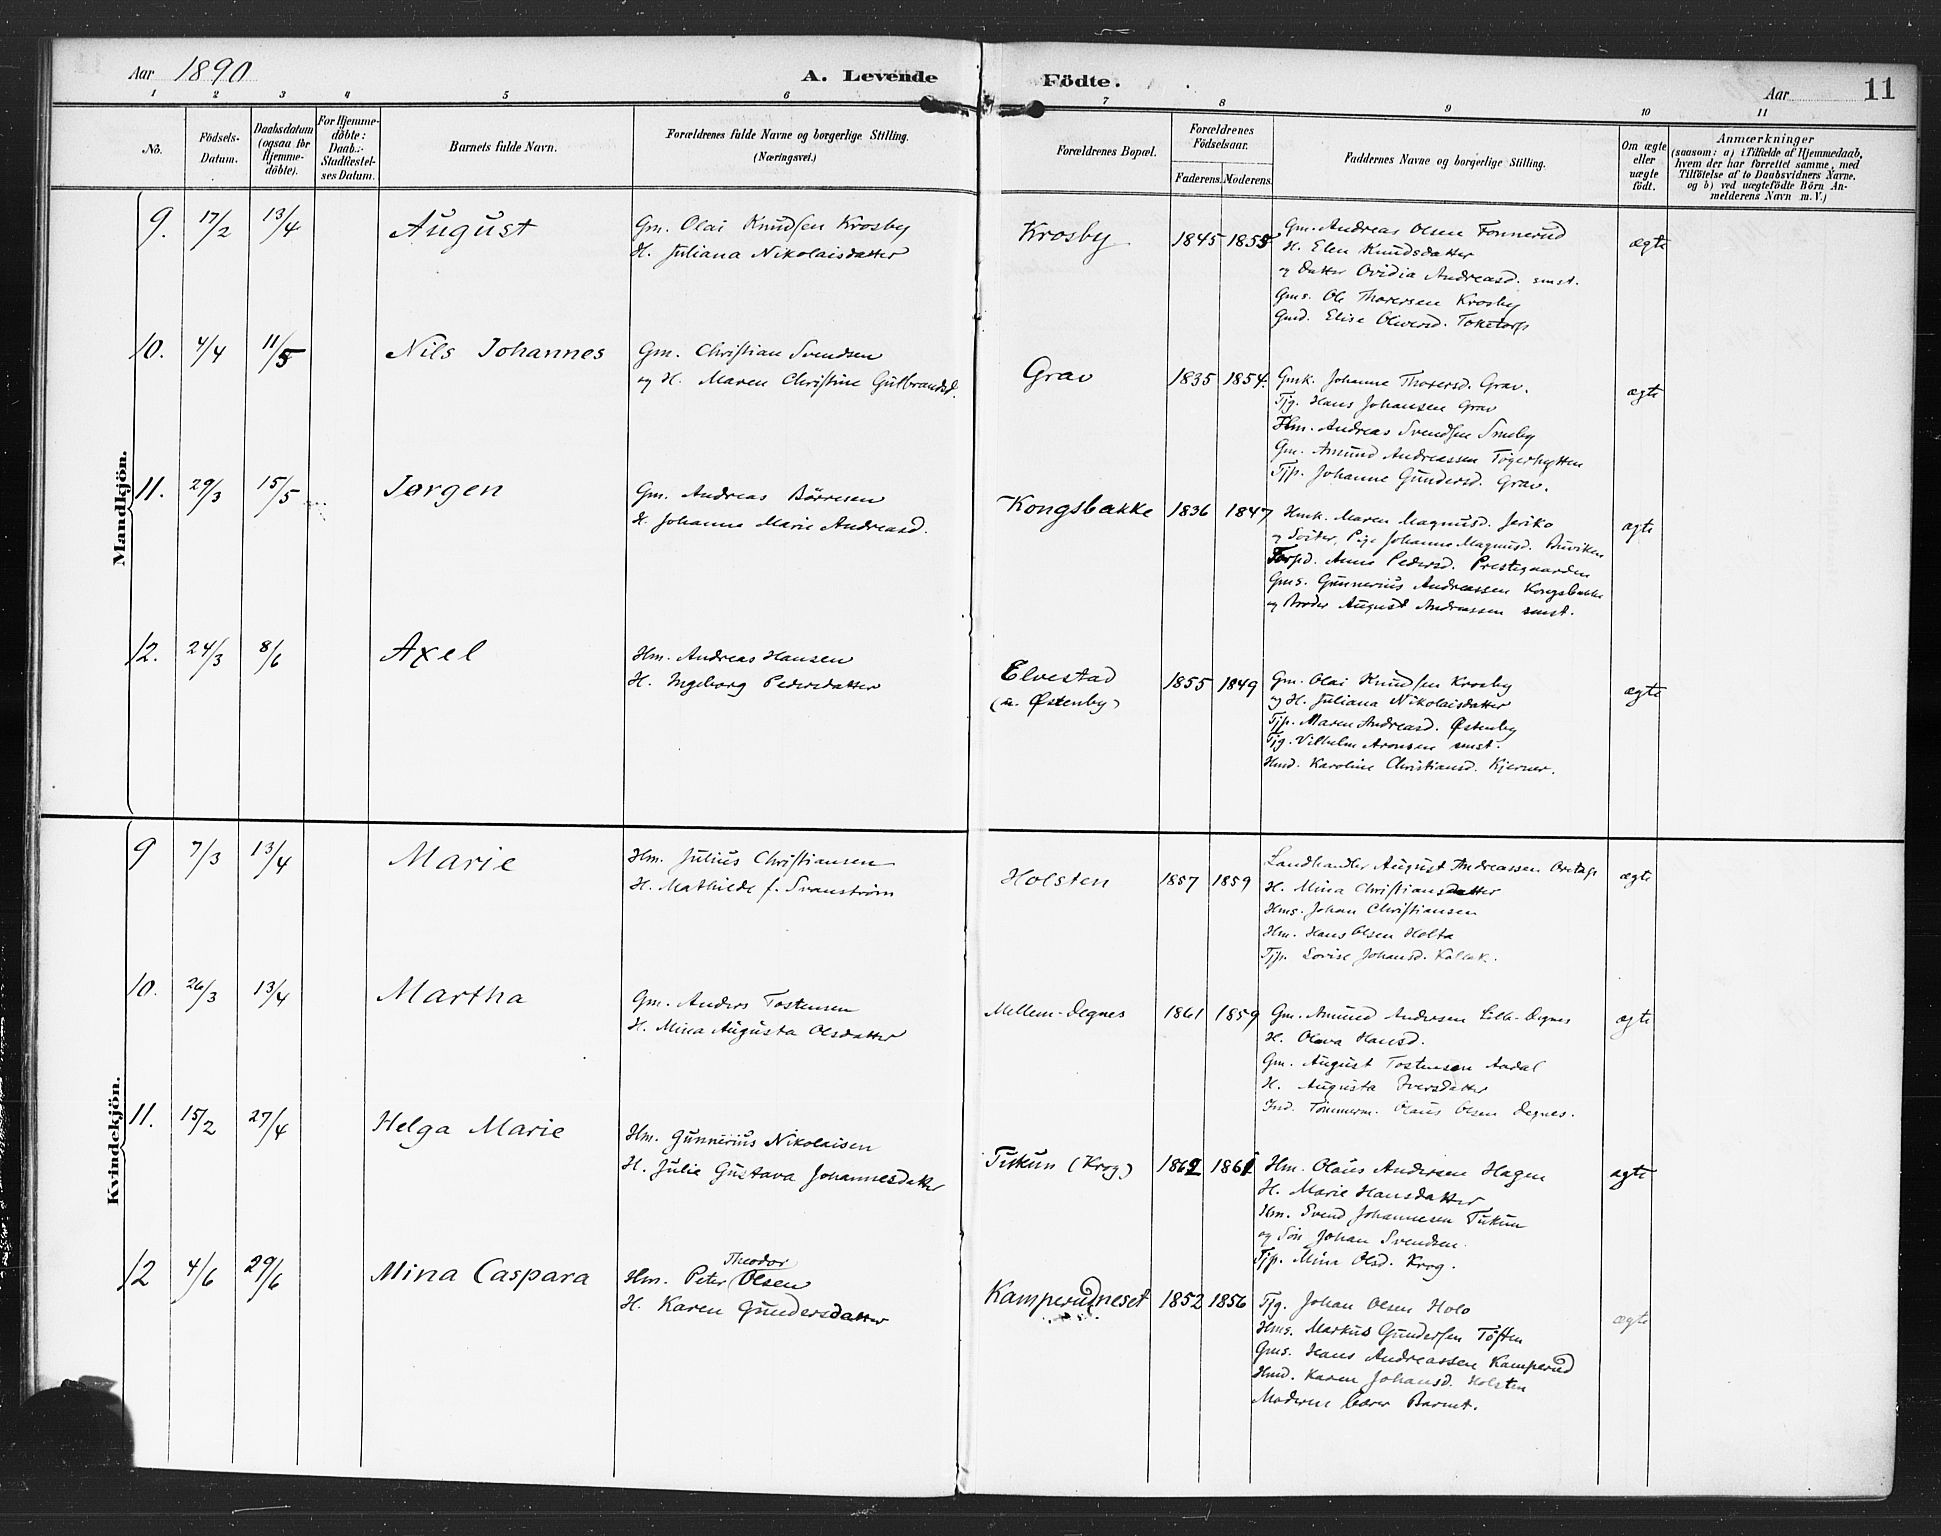 Aar 1890
A. Levende Födte.
Aar
11
1 2 3 4 5 6 7 8 9 10 11
No.
Födsels-Datum.
Daabsdatum (ogsaa for Hjemme-döbte).
For Hjemme-döbte: Daab.:-Stadfæstel-ses Datum.
Barnets fulde Navn.
Forældrenes fulde Navne og borgerlige Stilling.
(Næringsvei.)
Forældrenes Bopæl.
Forældrenes Födselsaar.
Faderens. Moderens.
Faddernes Navne og borgerlige Stilling.
Om ægte eller uægte födt.
Anmærkninger
(saasom: a) i Tilfælde af Hjemmedaab,
hvem der har forrettet samme, med
Tilföielse af to Daabsvidners Navne.
og b) ved uægtefödte Börn An-
melderens Navn m. V.)
Mandkjön.
9. 17/2 13/4 August
Gm. Olai Knudsen Krosby
H. Juliana Nikolaisdatter
Krosby 1845 1855
Gm. Andreas Olsen Tonnerud
H. Elen Knudsdatter
og Datter Ovidia Andreasd. smst.
Gms. Ole Thoresen Krosby
Gmd. Elise Oliversd. Toketorp
ægte
10. 4/4 11/5 Nils Johannes
Gm. Christian Svendsen
og H. Maren Christine Gulbrandsd.
Grav 1835 1854.
Gmk. Johanne Thoresd. Grav.
Tjg. Hans Johansen Grav
Hm. Andreas Svendsen Smeby
Gm. Amund Andreassen Togerhytten
Tjp. Johanne Gundersd. Grav.
ægte
11. 29/3 15/5 Jørgen
Gm. Andreas Börresen
H. Johanne Marie Andreasd.
Kongsbakke 1836 1847
Hmk. Maren Magnusd. Jeriko
og Söster, Pige Johanne Magnusd. Buviken
Anne Pedersd. Prestegaarden
Gms. Gunnerius Andreassen Kongsbakke
og Broder August Andreassen smst.
ægte
12. 24/3 8/6 Axel
Hm. Andreas Hansen
H. Ingeborg Pedersdatter
Elvestad
(u. Østenby)
1855 1849
Gm. Olai Knudsen Krosby
og H. Juliana Nikolaisdatter
Tjp. Maren Andreasd. Østenby
Tjg. Vilhelm Aronsen smst.
Hmd. Karoline Christiansd. Kjerner.
ægte
Kvindekjön.
9 7/3 13/4 Marie
Hm. Julius Christiansen
H. Mathilde f. Svanström
Holsten 1857 1859
Landhandler August Andreassen
H. Mina Christiansdatter
Hms. Johan Christiansen
Hm. Hans Olsen Holta
Tjp. Lovise Johansd. Kollak.
ægte
10. 26/3 13/4 Martha
Gm. Anders Tostensen
H. Mina Augusta Olsdatter
Mellem-Degnes 1861 1859
Gm. Amund Andersen Lille-Degnes
H. Olava Hansd.
Gm. August Tostensen Aadal
H. Augusta Iversdatter
Ind. Tömmerm. Olaus Olsen Degnes.
ægte
11. 15/2 27/4 Helga Marie
Hm. Gunnerius Nikolaisen
H. Julie Gustava Johannesdatter
Tukun (Krog) 1862 1861
Hm. Olaus Andersen Hagen
H. Marie Hansdatter
Hm. Svend Johannesen Tukun
og Sön Johan Svendsen.
Tjp. Mina Olsd. Krog.
ægte
12 4/6 29/6 Mina Caspara
Theodor
Hm. Peter Olsen
H. Karen Gundersdatter
Kamperudneset 1852 1856
Tjg. Johan Olsen Holo
Hms. Markus Gundersen Töften
Gms. Hans Andreassen Kamperud
Hmd. Karen Johansd. Holsten
Moderen bærer Barnet.
ægte